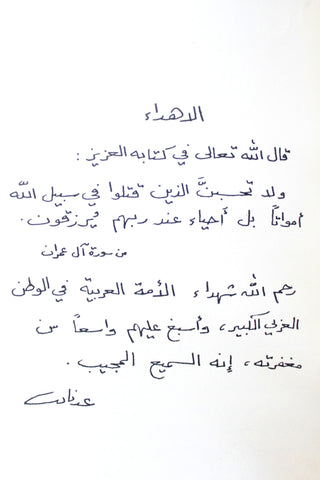 الاهداء
قال الله تعالى في كتابه العزيز :
ولا تحسبنَّ الذين قتلوا في سبيل الله
أمواتاً بل أحياء عند ربهم يُرزقون .
من سورة آل عمران
رحم الله شهداء الأمة العربية في الوطن
العربي الكبير ، وأسبغ عليهم واسعاً من
مغفرته ، إنه السميع المجيب .
عدنان